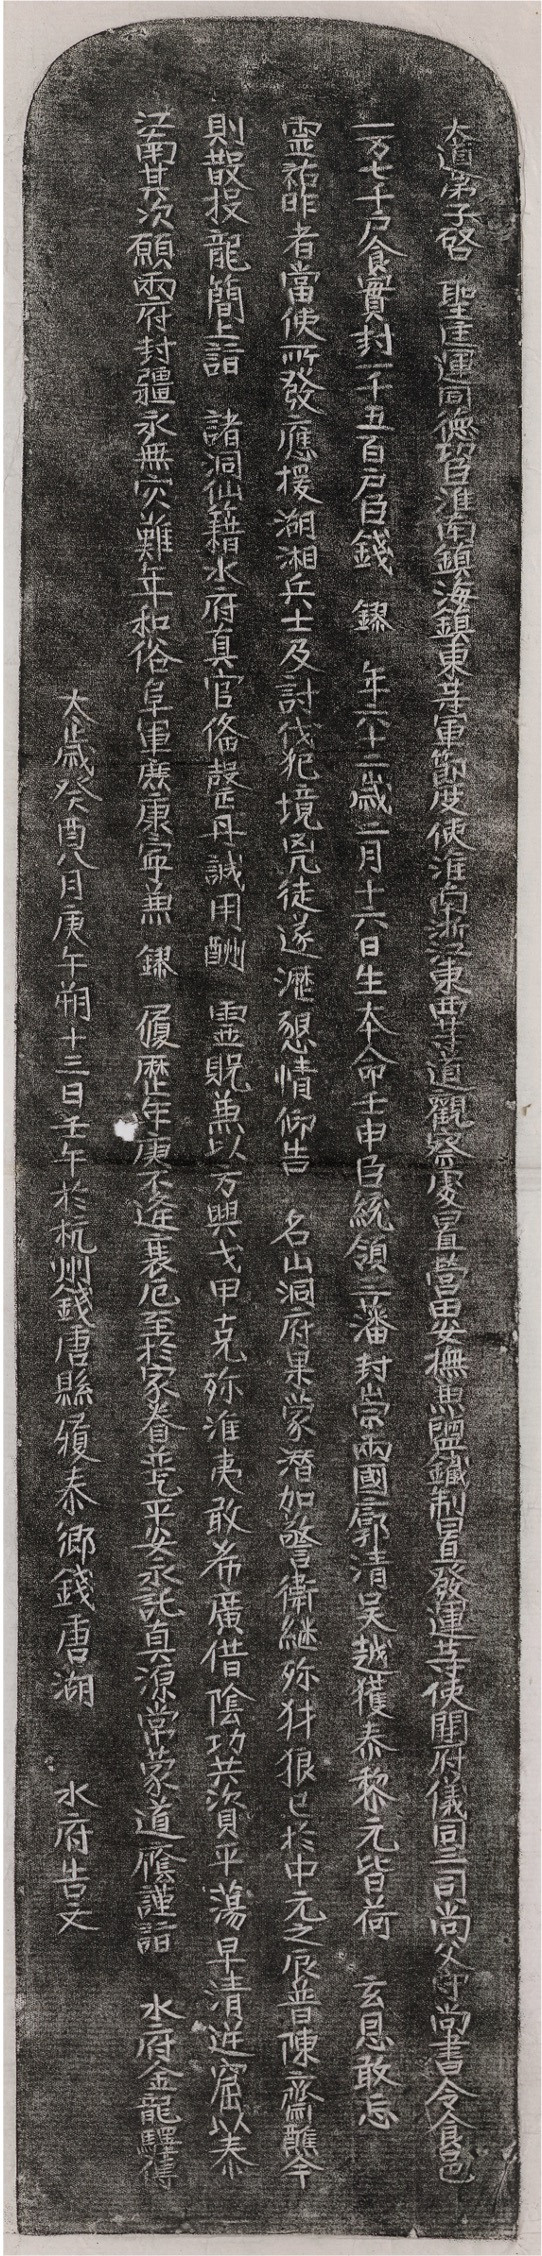 大道弟子啓 聖匡運同德功臣淮南鎮海鎮東等軍節度使淮南浙江東西等道觀察處置營田安撫兼鹽鐵制置發運等使開府儀同三司尚父守尚書令食邑
一万七千戶食實封一千五百戶臣錢 鏐 年六十二歲二月十六日生本命壬申臣統領三藩封崇兩國廓清吳越獲泰黎元皆荷 玄恩敢忘
靈祐昨者當使所發應援湖湘兵士及討伐犯境兇徒遂瀝懇情仰告 名山洞府果蒙潛加警衛継殄犲狼已於中元之辰普陳齋醮今
則散投龍簡上詣 諸洞仙籍水府真官俻罄丹誠用酬 靈貺兼以方興戈甲克殄淮夷敢希廣借陰功共資平蕩早清逆窟以泰
江南其次願兩府封疆永無灾難年和俗阜軍庶康寧兼 鏐 履歷年庚不逢衰厄至於家眷並乞平安永託真源常蒙道廕謹詣 水府金龍驛傳
太歲癸酉八月庚午朔十三日壬午於杭州錢唐縣履泰鄉錢唐湖 水府告文